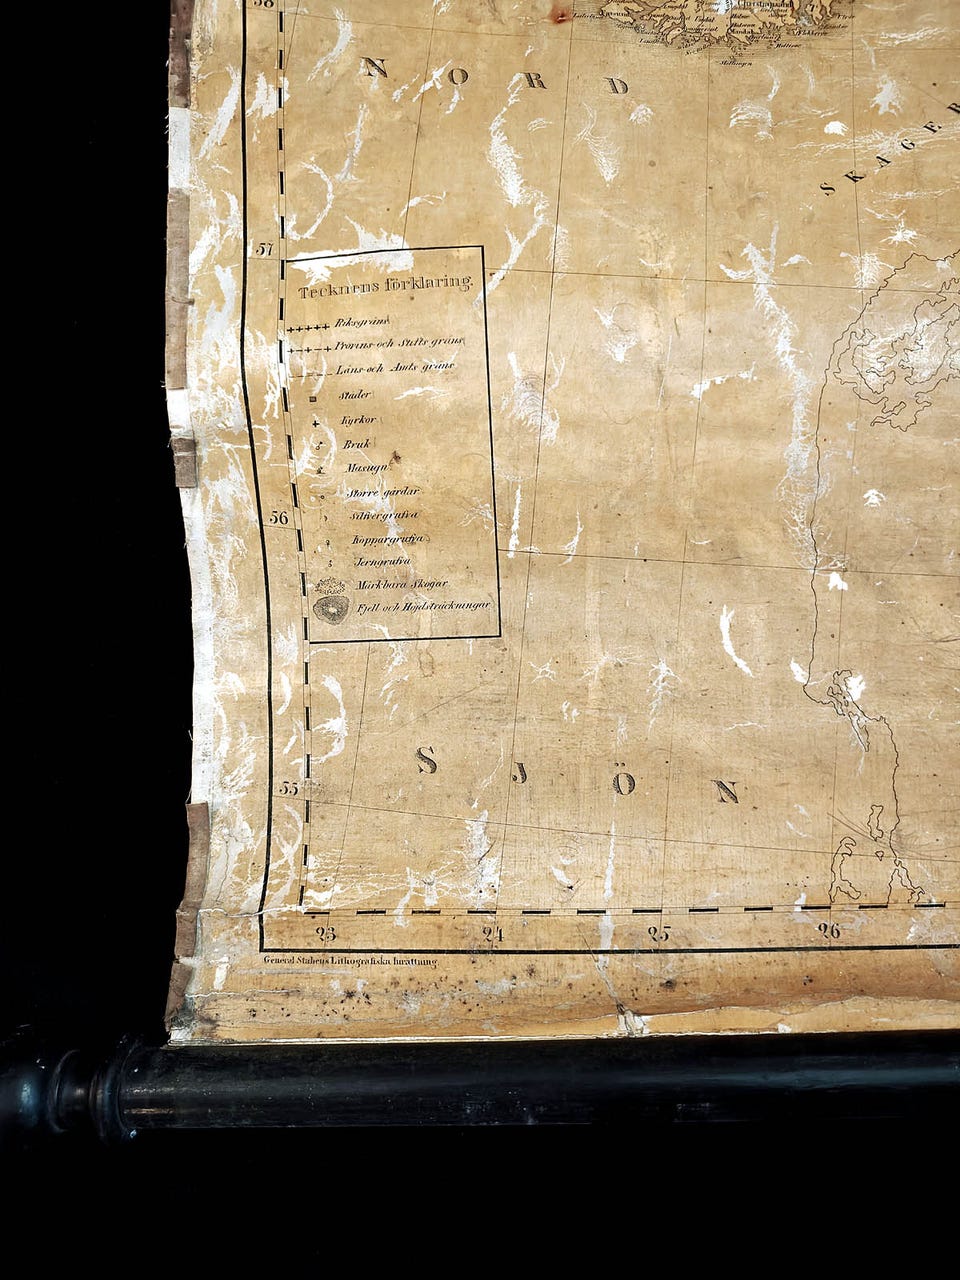 58
Christiansand
Mandal
N O R D
S K A G E R
57
Tecknens förklaring.
Riksgräns
Provins- och Stifts gräns
Läns- och Amts gräns
Städer
Kyrkor
Bruk
Masugn
Större gårdar
Silfvergrufva
Koppargrufva
Jerngrufva
Märkbara Skogar
Fjell och Höjdsträckningar
56
S J Ö N
55
23 24 25 26
General Stabens Lithografiska Inrättning.